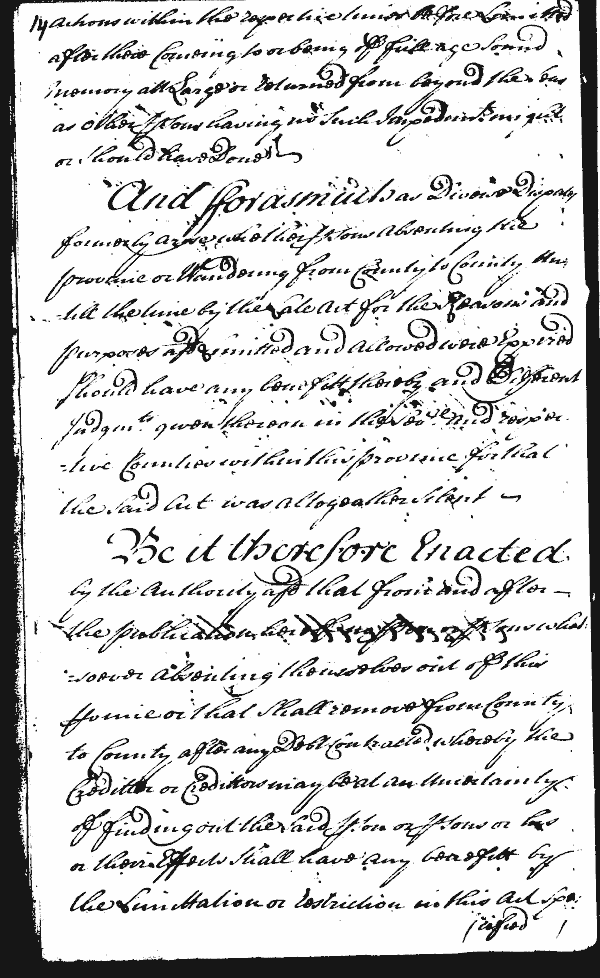 14 actions within the respective times before Limitted
after their Comeing to or being of full age Sound
Memory att Large or returned from beyond the Seas
as other Psons having no Such Impediment might
or Should have Done
And fforasmuch as Divers Disputes
formerly arose whether Psons absenting the
province or Wandering from County to County un-
-till the time by the Late Act for the Reasons and
purposes afd Limitted and allowed were Expired
Should have any benefitt thereby and Different
Judgmts given thereon in the Sevl and respec-
-tive Counties within this province for that
the Said Act was altogeather Silent
Be it therefore Enacted
by the Authority afd that from and after
the publication hereof no Pson or Psons what-
-soever absenting themselves out of this
Province or that Shall remove from County
to County after any Debt Contracted whereby the
Creditor or Creditors may be at an Uncertainty
of finding out the said Pson or Psons or his
or their Effects Shall have any benefitt by
the Limittation or restriction in this Act Spe-
cified